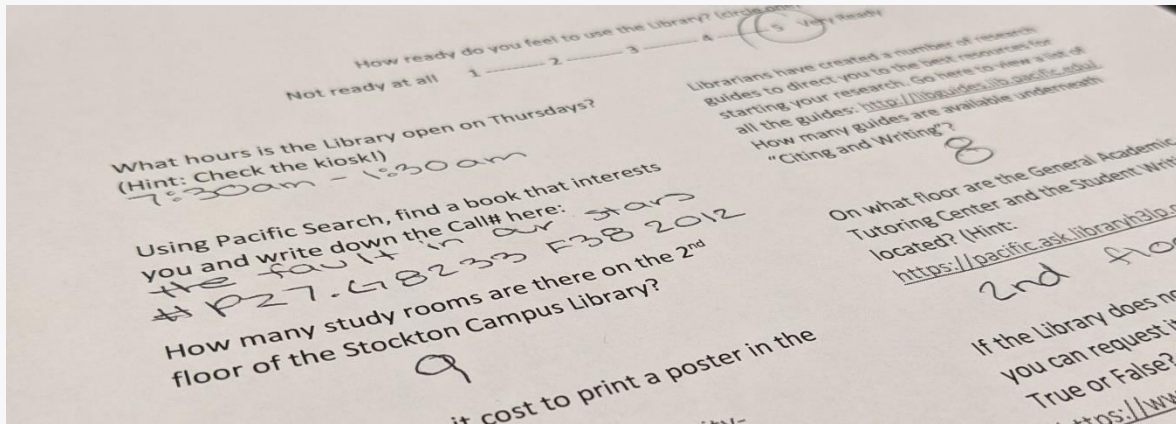 How ready do you feel to use the Library? (circle one)
Not ready at all 1 2 3 4 5 Very Ready
What hours is the Library open on Thursdays?
(Hint: Check the kiosk!)
7:30am - 1:30am
Using Pacific Search, find a book that interests
you and write down the Call# here:
the fault in our stars
# PZ7.G8233 F38 2012
How many study rooms are there on the 2nd
floor of the Stockton Campus Library?
9
it cost to print a poster in the
Librarians have created a number of research
guides to direct you to the best resources for
starting your research. Go here to view a list of
all the guides: http://libguides.lib.pacific.edu/
How many guides are available underneath
"Citing and Writing"?
8
On what floor are the General Academic
Tutoring Center and the Student Writ
located? (Hint:
https://pacific.ask.libraryh3lp
2nd flo
If the Library does n
you can request it
True or False?